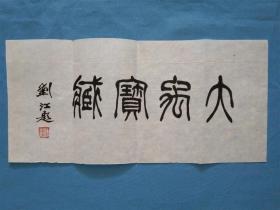 大禹寶藏
劉江題